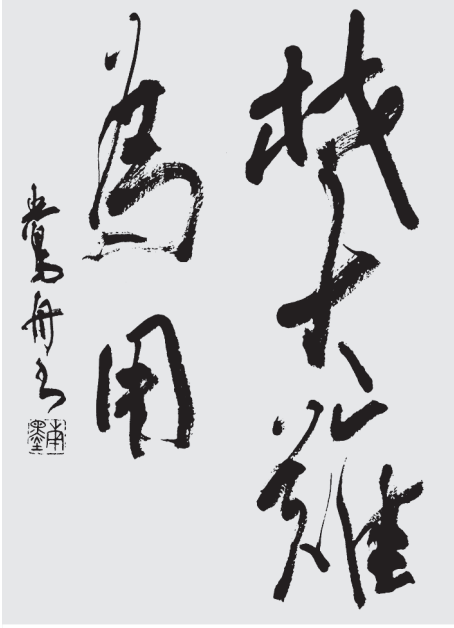 材大難
為用
舟書